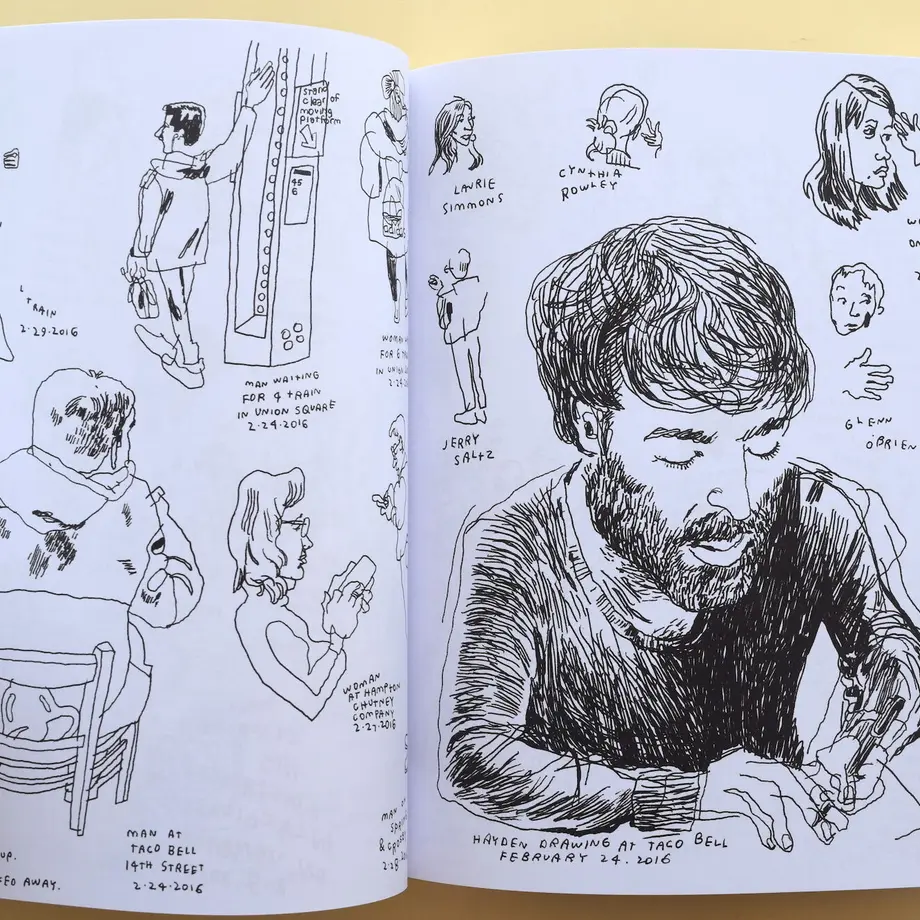 stand
clear of
moving
platform
45
6
L TRAIN
2·29·2016
MAN WAITING
FOR 4 TRAIN
IN UNION SQUARE
2·24·2016
WOMAN
FOR 6
IN UNION
WOMAN
AT HAMPTON
CHUTNEY
COMPANY
2·27·2016
MAN AT
TACO BELL
14TH STREET
2·24·2016
UP.
AWAY.
MAN
LAURIE
SIMMONS
CYNTHIA
ROWLEY
JERRY
SALTZ
GLENN
O'BRIEN
HAYDEN DRAWING AT TACO BELL
FEBRUARY 24·2016